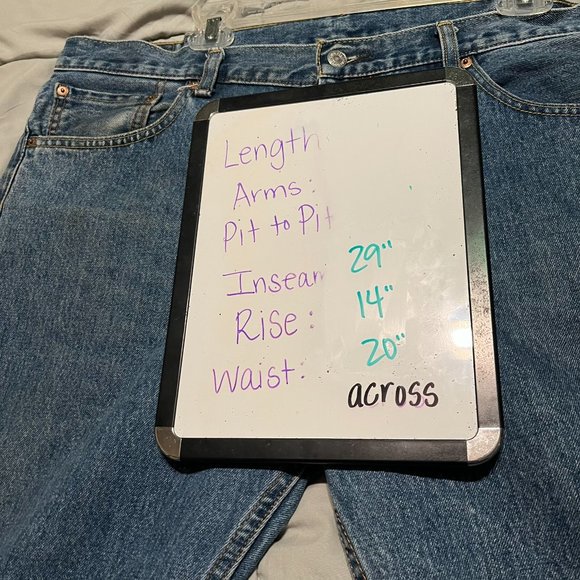 Length
Arms:
Pit to Pit
Inseam 29"
Rise: 14"
Waist: 20"
across